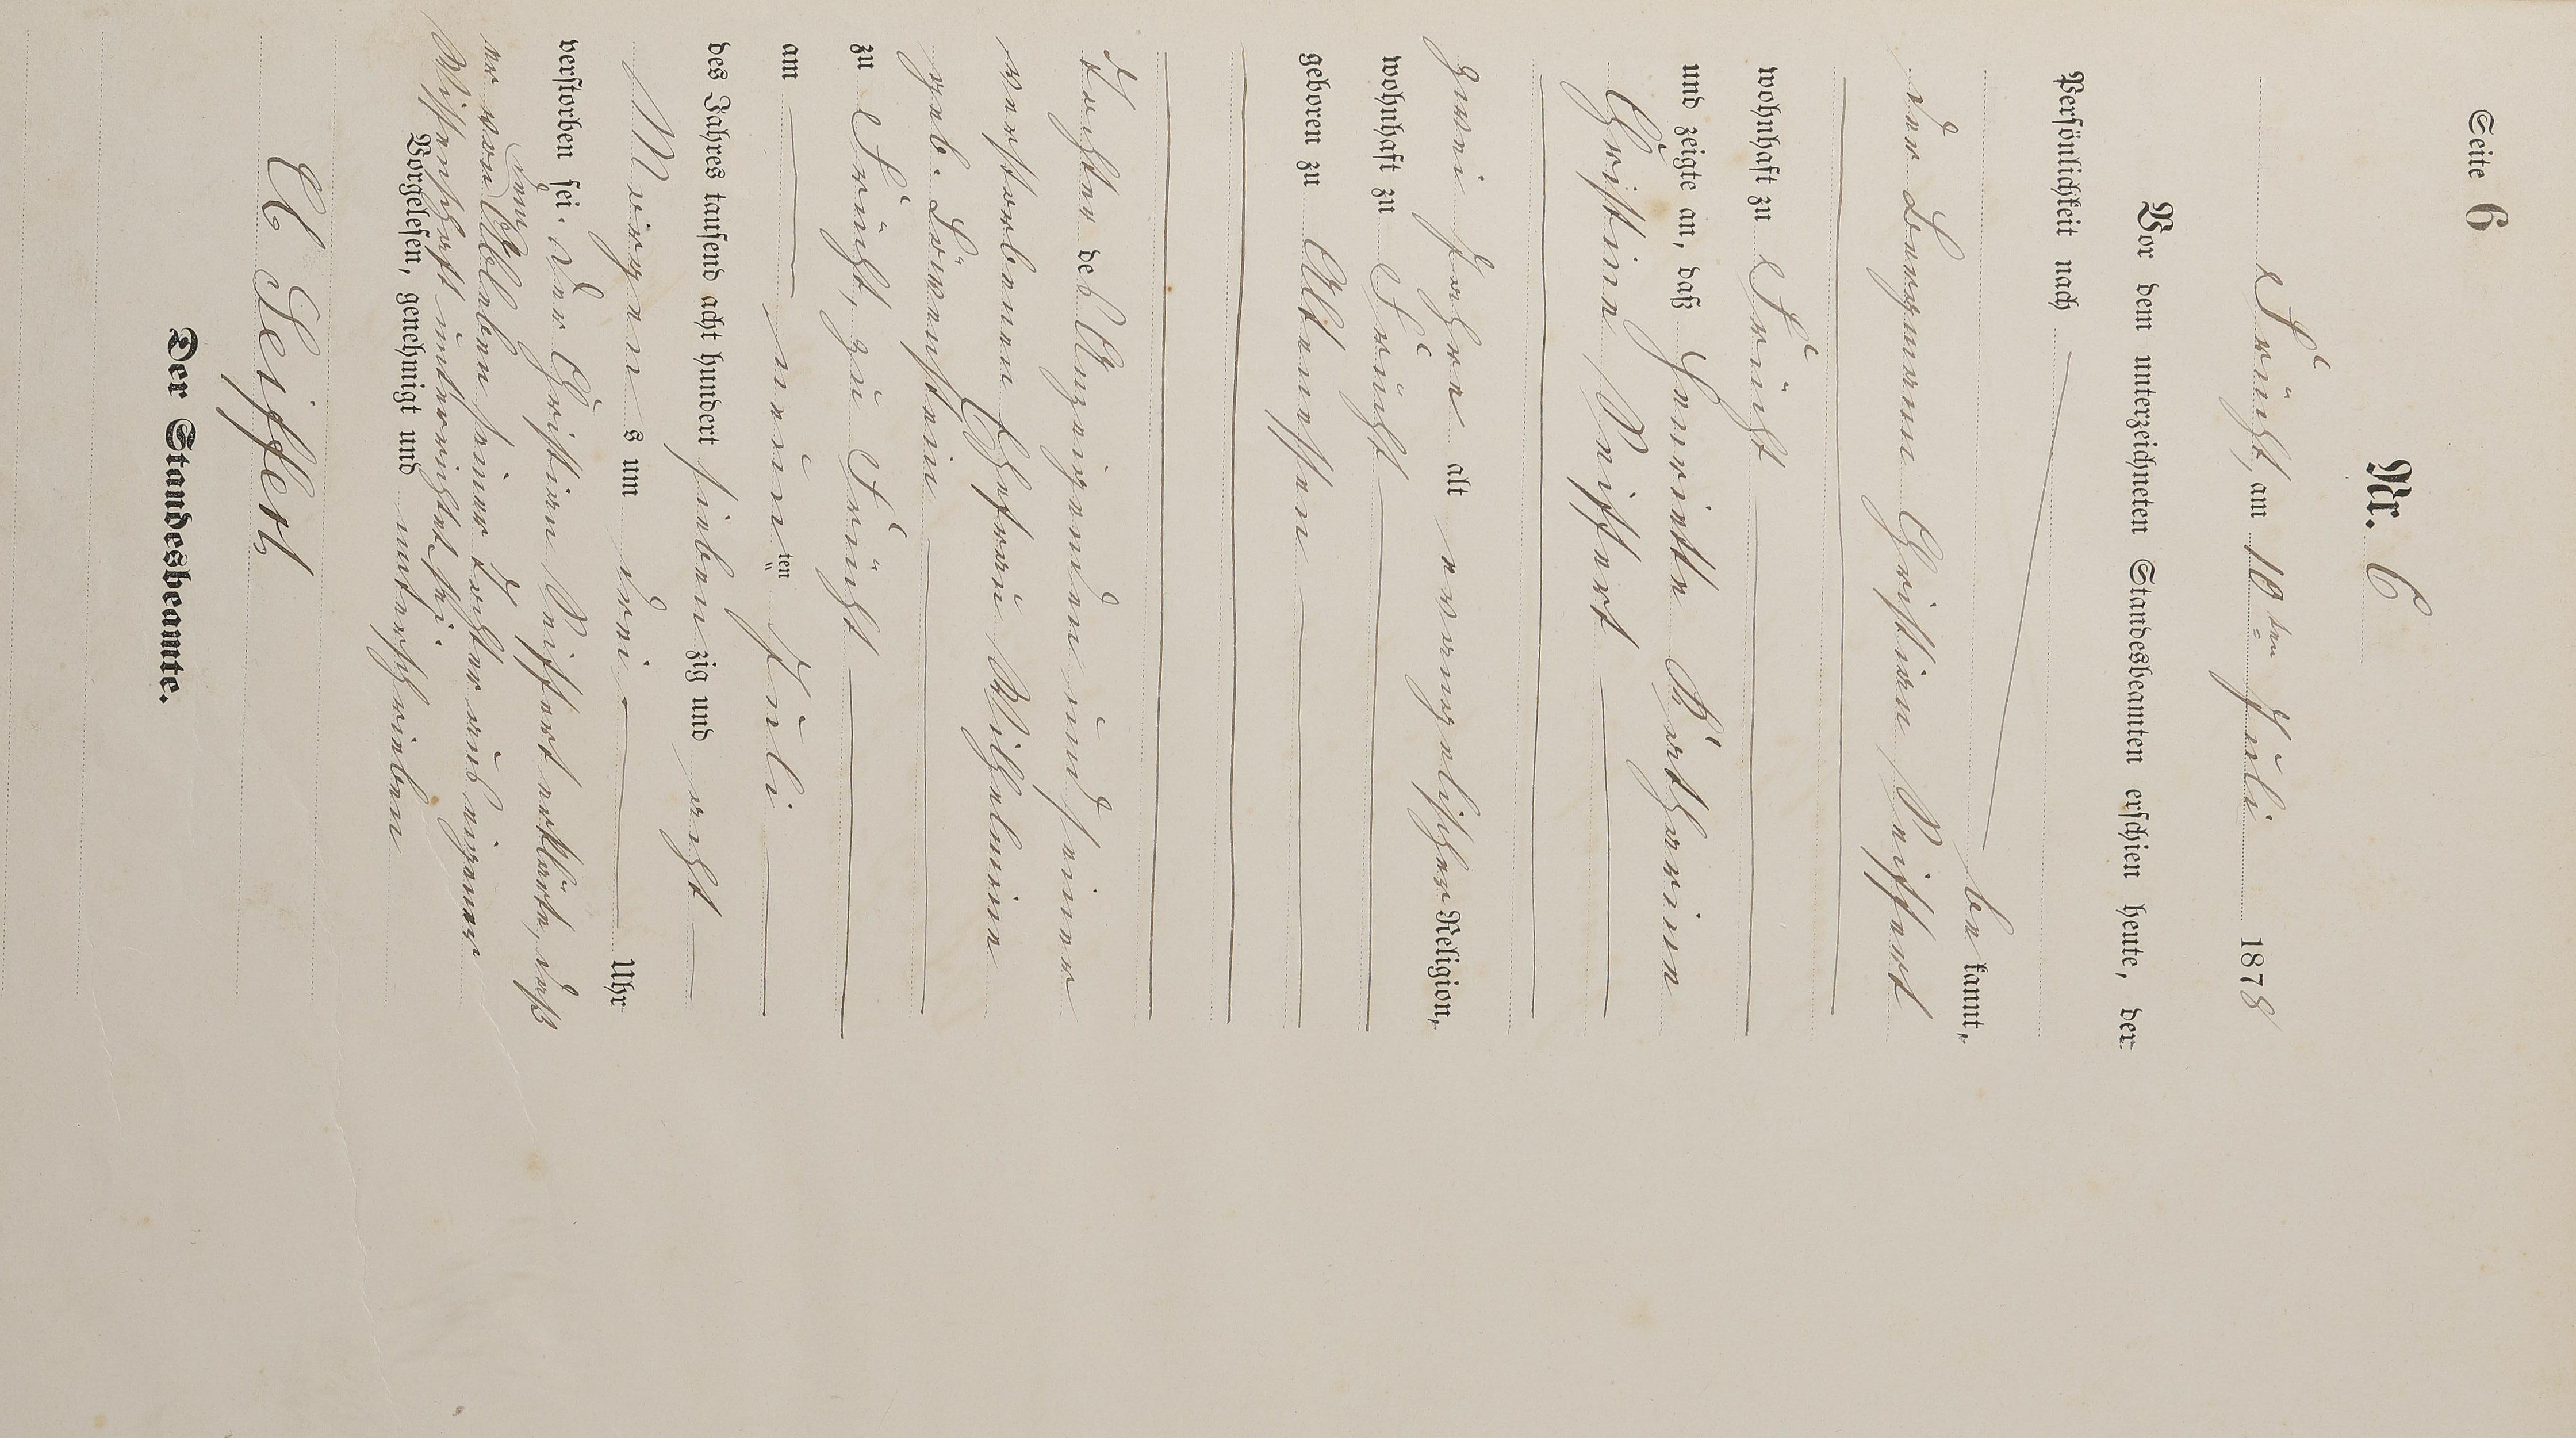 Seite 6
Nr. 6
Frücht, am 10ten Juli 1878
Vor dem unterzeichneten Standesbeamten erschien heute, der
Persönlichkeit nach
bekannt,
der Bergmann Christian Seiffert
wohnhaft zu Frücht
und zeigte an, daß Henriette Katharine
Christine Seiffert
zwei Jahre alt evangelischer Religion,
wohnhaft zu Frücht
geboren zu Altenessen
Tochter des Anzeigenden und seiner
verstorbenen Ehefrau Wilhelmine
geb. Löwenstein
zu Frücht, zu Frücht
am neunten Juli
des Jahres tausend acht hundert siebenzig und acht
Morgens um drei Uhr
verstorben sei. Der Christian Seiffert erklärte, daß
er von dem Ableben seiner Tochter aus eigener
Wissenschaft unterrichtet sei.
Vorgelesen, genehmigt und unterschrieben
C Seiffert
Der Standesbeamte.